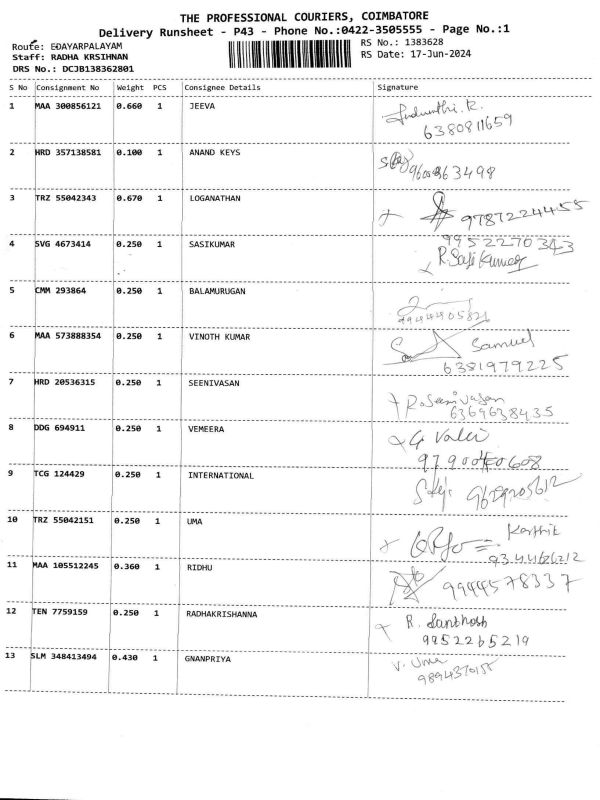 THE PROFESSIONAL COURIERS, COIMBATORE
Delivery Runsheet - P43 - Phone No.:0422-3505555 - Page No.:1
Route: EDAYARPALAYAM
RS No.: 1383628
Staff: RADHA KRSIHNAN
RS Date: 17-Jun-2024
DRS No.: DCJB138362801
S No Consignment No Weight PCS Consignee Details Signature
1 MAA 300856121 0.660 1 JEEVA
6380811659
2 HRD 357138581 0.100 1 ANAND KEYS
63498
3 TRZ 55042343 0.670 1 LOGANATHAN
9787224455
4 SVG 4673414 0.250 1 SASIKUMAR
9952270343
R. Sasi Kumar
5 CMM 293864 0.250 1 BALAMURUGAN
9944405821
6 MAA 573888354 0.250 1 VINOTH KUMAR
Samuel
6381979225
7 HRD 20536315 0.250 1 SEENIVASAN
R. Seenivasan
6369638435
8 DDG 694911 0.250 1 VEMEERA
97900
9 TCG 124429 0.250 1 INTERNATIONAL
9629205612
10 TRZ 55042151 0.250 1 UMA
Karthik
11 MAA 105512245 0.360 1 RIDHU
9944578337
12 TEN 7759159 0.250 1 RADHAKRISHANNA
R. Santhosh
9952265219
13 SLM 348413494 0.430 1 GNANPRIYA
V. Uma